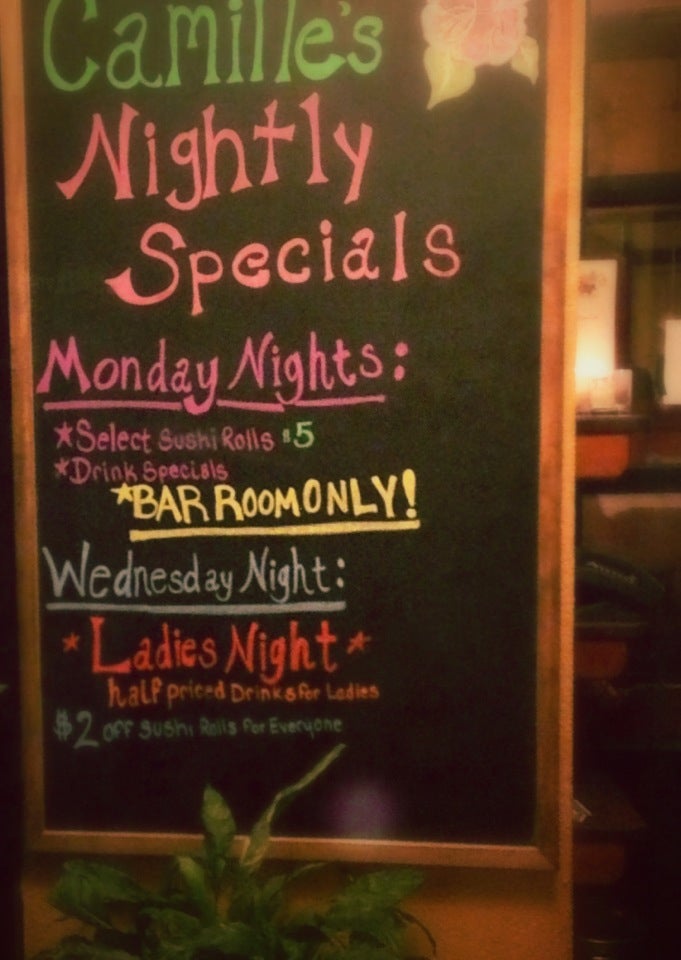 Camille's
Nightly
Specials
Monday Nights:
*Select Sushi Rolls $5
*Drink Specials
*BAR ROOM ONLY!
Wednesday Night:
* Ladies Night *
half priced Drinks for Ladies
$2 off Sushi Rolls for Everyone